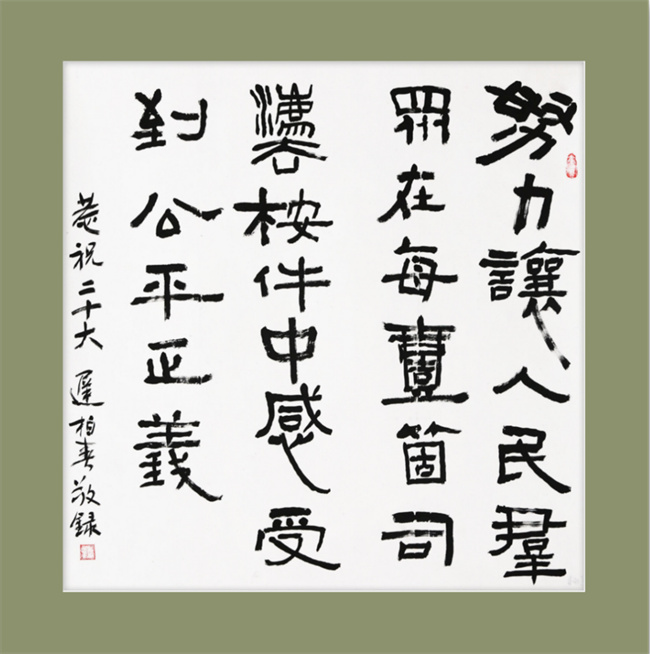 努力讓人民羣
眾在每壹箇司
灋桉件中感受
到公平正義
恭祝二十大 遲柏春敬録